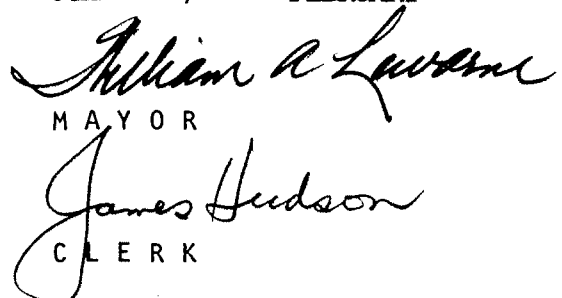 William A Lawarne
M A Y O R
James Hudson
C L E R K